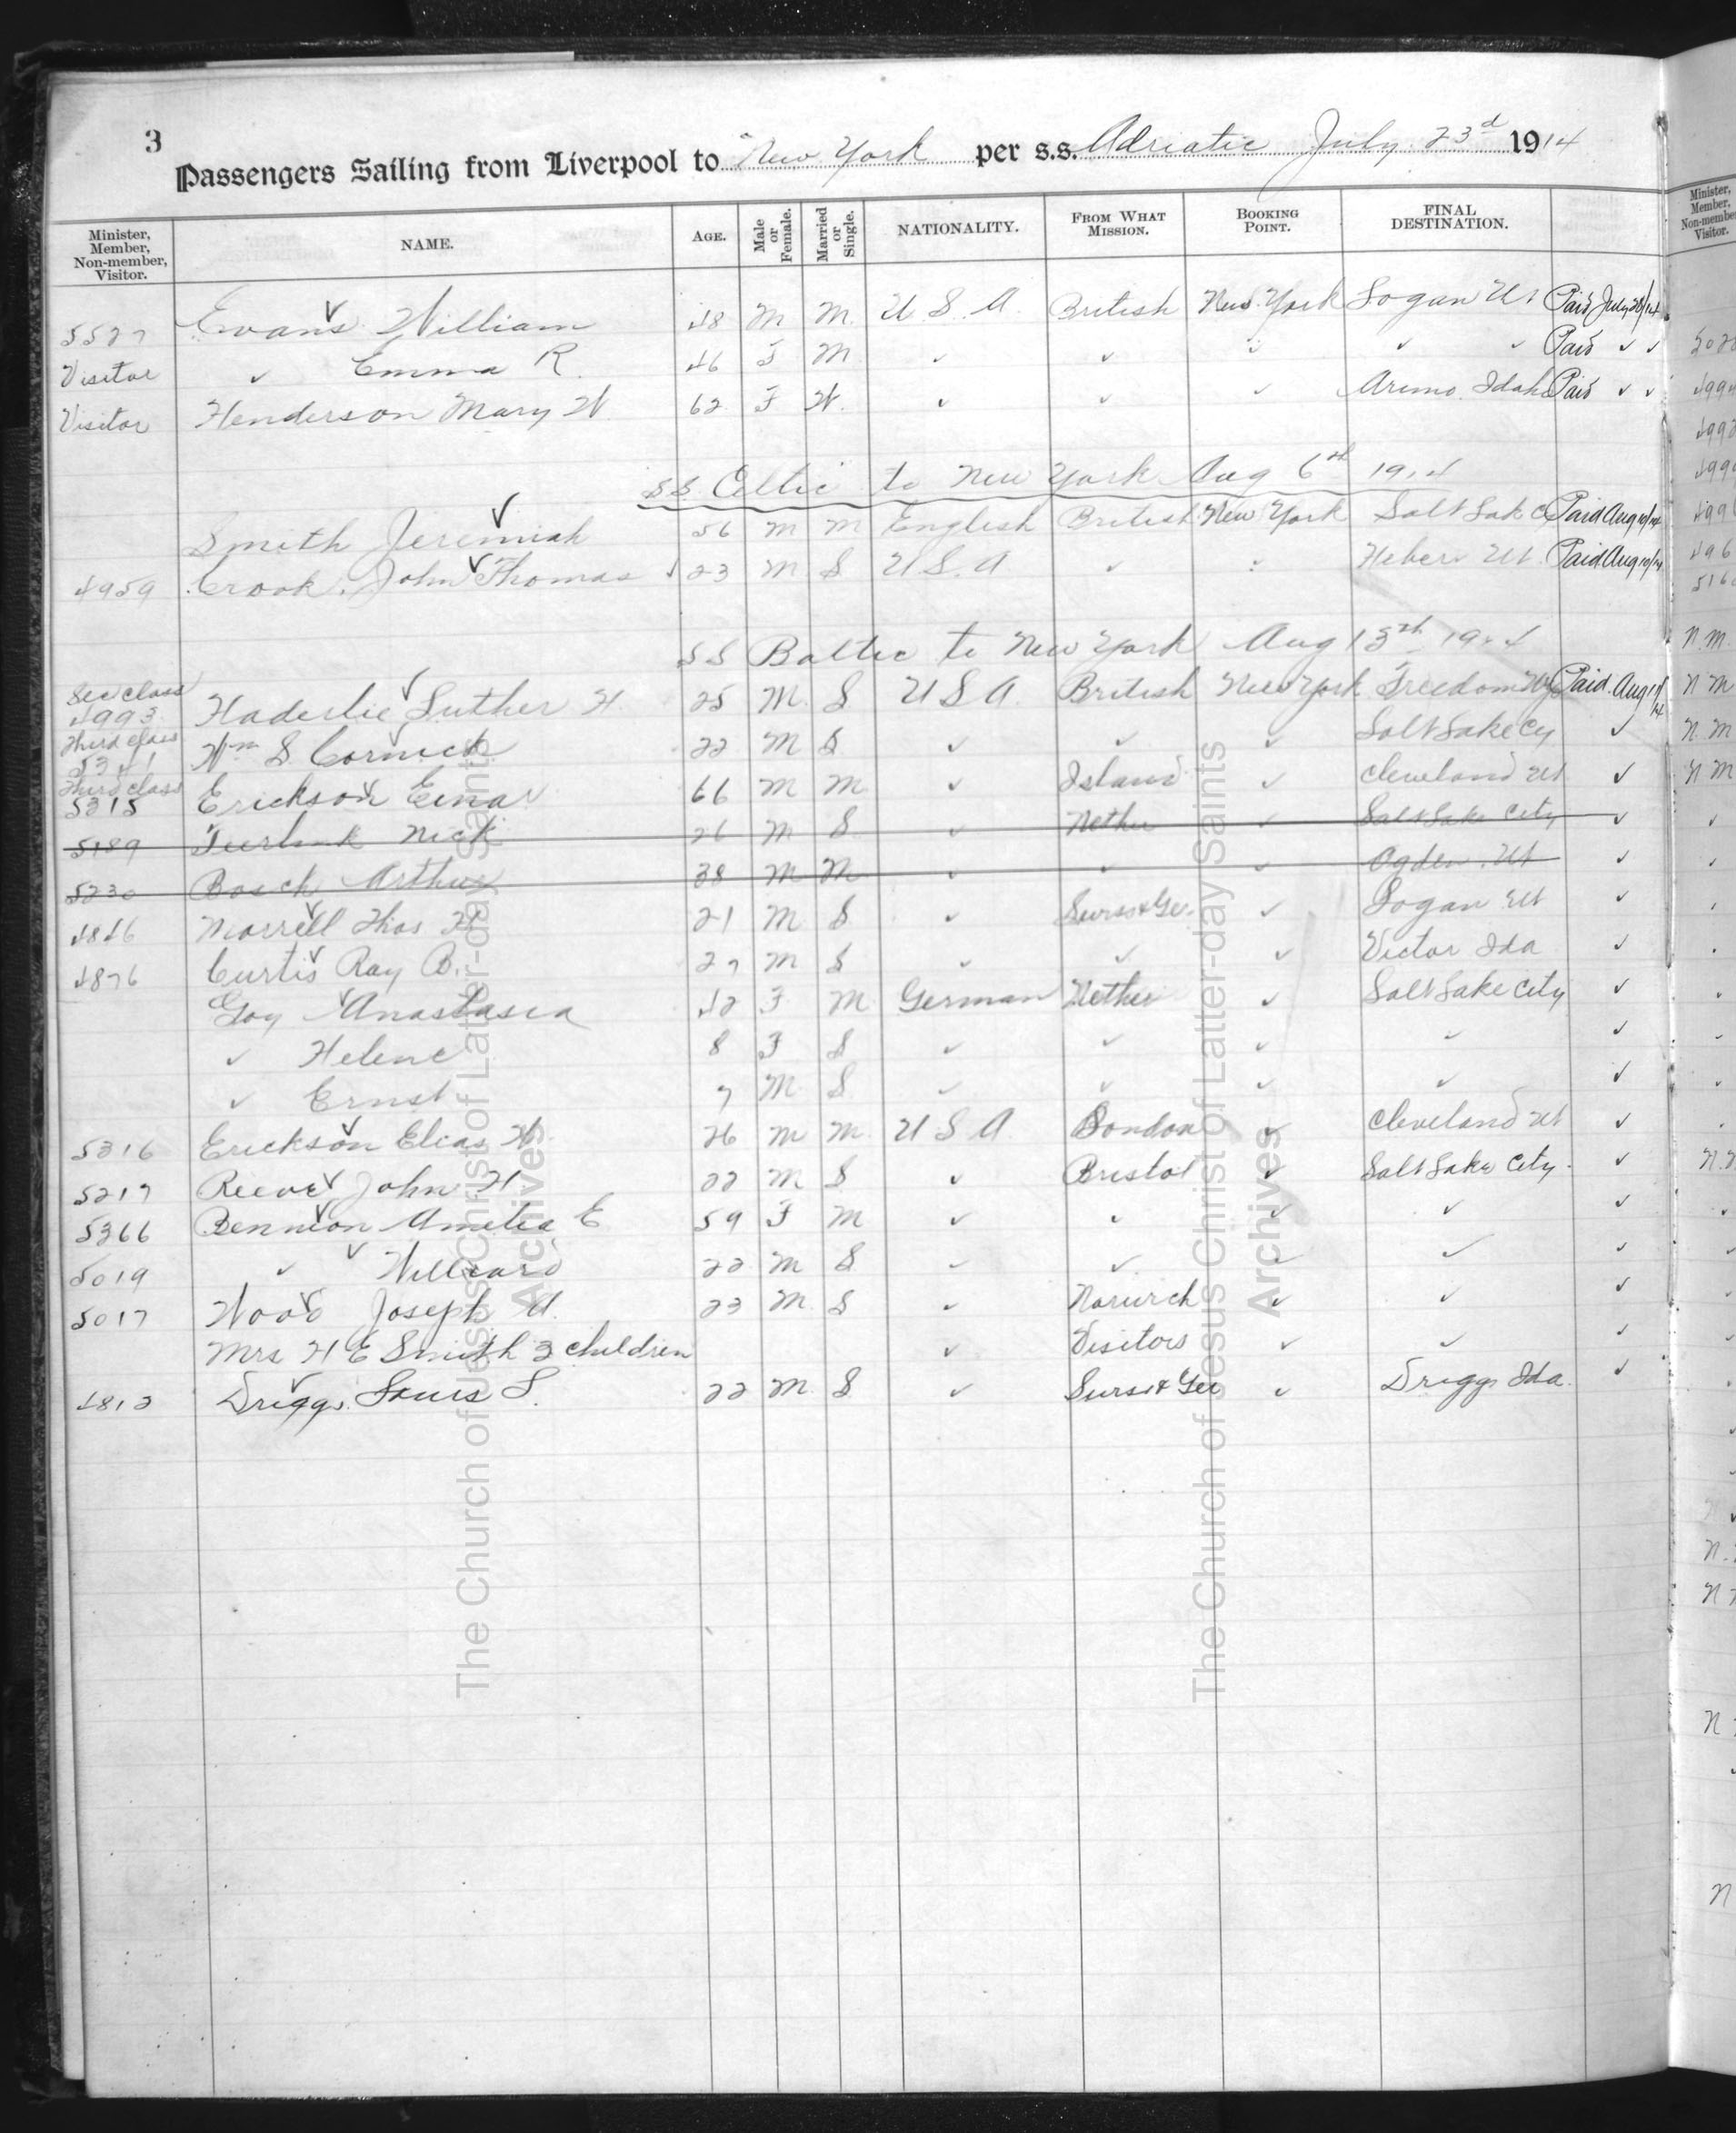 3
Passengers Sailing from Liverpool to New York per s.s. Adriatic July 23d 1914
Minister, Member, Non-member, Visitor. NAME. AGE. Male or Female. Married or Single. NATIONALITY. FROM WHAT MISSION. BOOKING POINT. FINAL DESTINATION.
5527 Evans William 48 M M. U S A. British New York Logan Ut Paid July 28/14
Visitor ✓ Emma R. 46 F M ✓ ✓ ✓ ✓ ✓ Paid ✓ ✓
Visitor Henderson Mary W 62 F W. ✓ ✓ ✓ Arimo. Idaho Paid ✓ ✓
SS Celtic to New York Aug 6th 1914
Smith Jeremiah 56 M M English British New York Salt Lake C Paid Aug 10/14
4959 Crook. John Thomas ✓ 23 M S U S. A ✓ Heber Ut Paid Aug 10/14
SS Baltic to New York Aug 13th 1914
Sec class
4993 Haderlie Luther H. 25 M. S U S A. British New York Freedom Wyo Paid. Aug 17/14
Third class
5341 Wm S. Cornick 22 M S ✓ ✓ ✓ Salt Lake Cy ✓
Third class
5315 Erickson Einar 66 M M ✓ Island ✓ Cleveland Ut ✓
5189 Teerlink Nick 26 M S ✓ Nether ✓ Salt Lake City ✓
5230 Bosch Arthur 38 M M ✓ ✓ ✓ Ogden. Ut ✓
4846 Morrell Thos H 21 M S ✓ Swiss & Ger. ✓ Logan Ut ✓
4876 Curtis Ray B. 27 M S ✓ ✓ ✓ Victor Ida ✓
Goy Anastasia 42 F M German Nether ✓ Salt Lake City ✓
✓ Helene 8 F S ✓ ✓ ✓ ✓ ✓
✓ Ernst 7 M S ✓ ✓ ✓ ✓ ✓
5316 Erickson Elias W. 26 M M U S A. London ✓ Cleveland Ut ✓
5217 Reeve John H 22 M S ✓ Bristol ✓ Salt Lake City. ✓
5366 Bennion Amelia E 59 F M ✓ ✓ ✓ ✓ ✓
5019 ✓ Williard 22 M S ✓ ✓ ✓ ✓ ✓
5017 Wood Joseph A. 23 M. S ✓ Norwich ✓ ✓ ✓
Mrs H E Smith 3 children ✓ Visitors ✓ ✓ ✓
4813 Driggs. Louis L. 22 M. S ✓ Swiss & Ger ✓ Driggs Ida. ✓
The Church of Jesus Christ of Latter-day Saints
Archives
The Church of Jesus Christ of Latter-day Saints
Archives
Minister, Member, Non-membe Visitor.